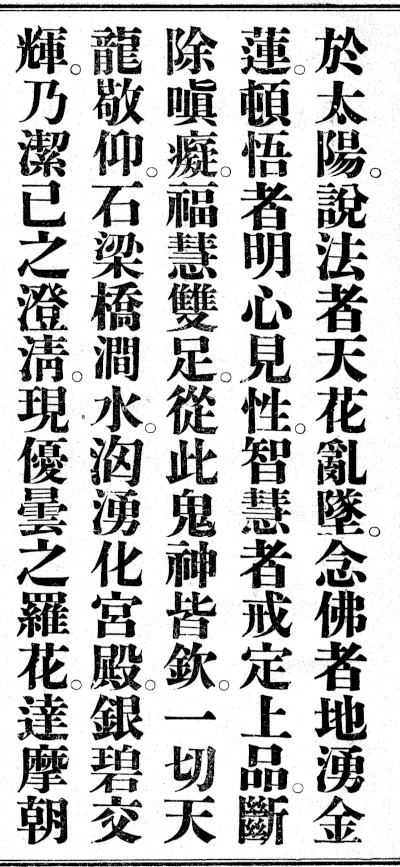 於太陽。說法者天花亂墜。念佛者地湧金
蓮。頓悟者明心見性。智慧者戒定上品。斷
除嗔癡。福慧雙足。從此鬼神皆欽。一切天
龍敬仰。石梁橋澗水。洶湧化宮殿。銀碧交
輝。乃潔已之澄淸。現優曇之羅花。達摩朝